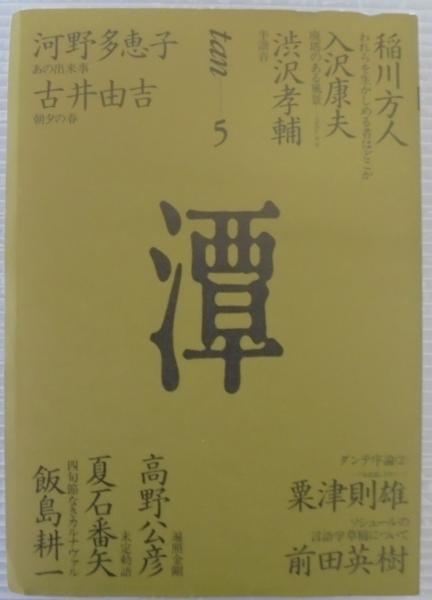 稲川方人
われらを生かしめる者はどこか
入沢康夫
廃墟のある風景
渋沢孝輔
半諧音
tan — 5
河野多恵子
あの出来事
古井由吉
朝夕の春
潭
ダンテ序論(2)
粟津則雄
ソシュールの
言語学草稿について
前田英樹
高野公彦
遍照金剛
夏石番矢
未定勅語
四旬節なきカルナヴァル
飯島耕一